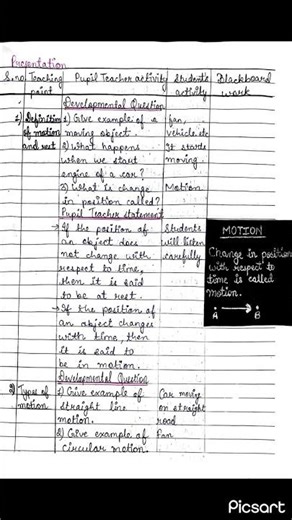 Presentation
S.no Teaching point Pupil Teacher activity Student's activity Blackboard work
Developmental Question
1) Definition of motion and rest
1) Give example of a moving object.
fan, vehicle etc
2) What happens when we start engine of a car?
It starts moving.
3) What is change in position called?
Motion
Pupil Teacher statement
→ If the position of an object does not change with respect to time, then it is said to be at rest.
Students will listen carefully
→ If the position of an object changes with time, then it is said to be in motion.
MOTION
Change in position
with respect to
time is called
motion.
A → B
Developmental Question
2) Types of motion
1) Give example of straight line motion.
Car moving on straight road
2) Give example of circular motion.
Fan
Picsart